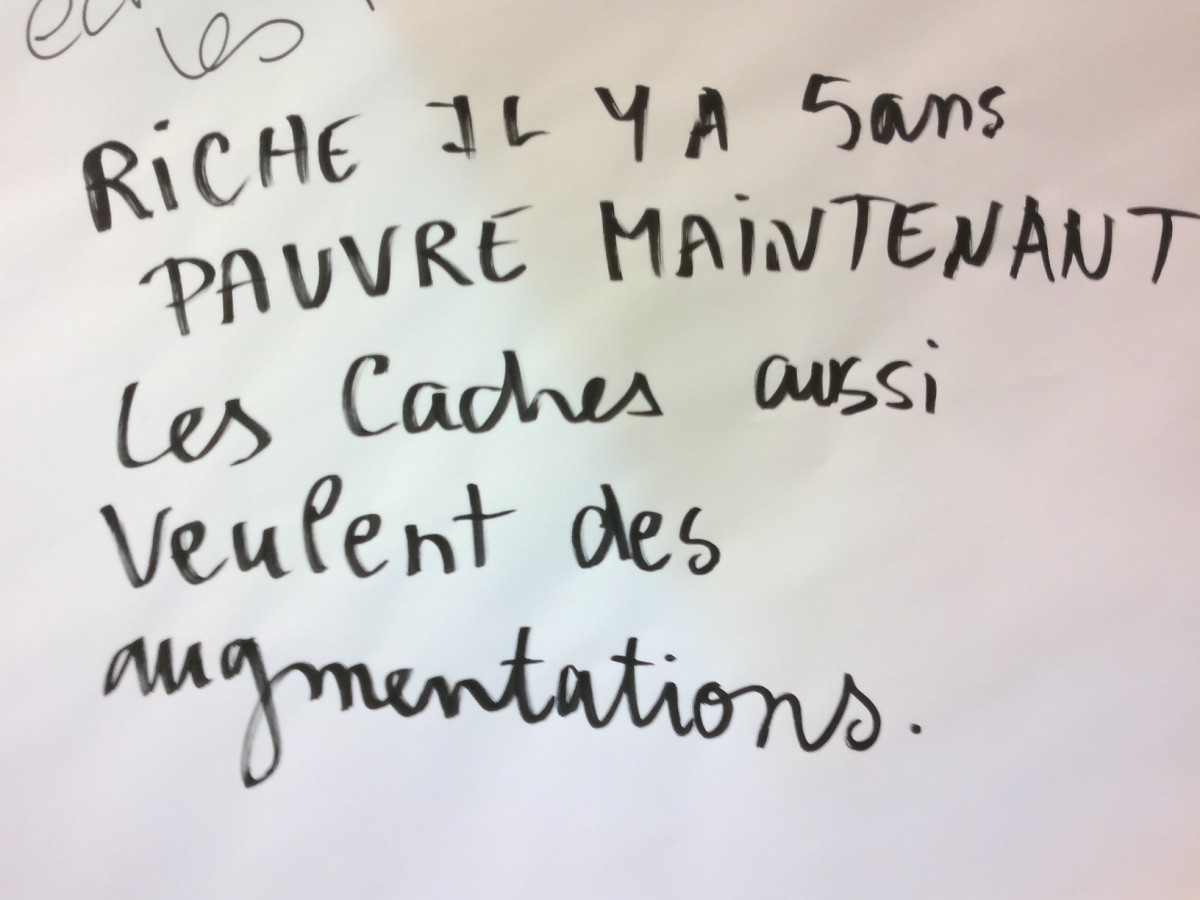 les
RiCHE IL Y A 5ans
PAUVRE MAiNTENANT
les Cadres aussi
Veulent des
augmentations.